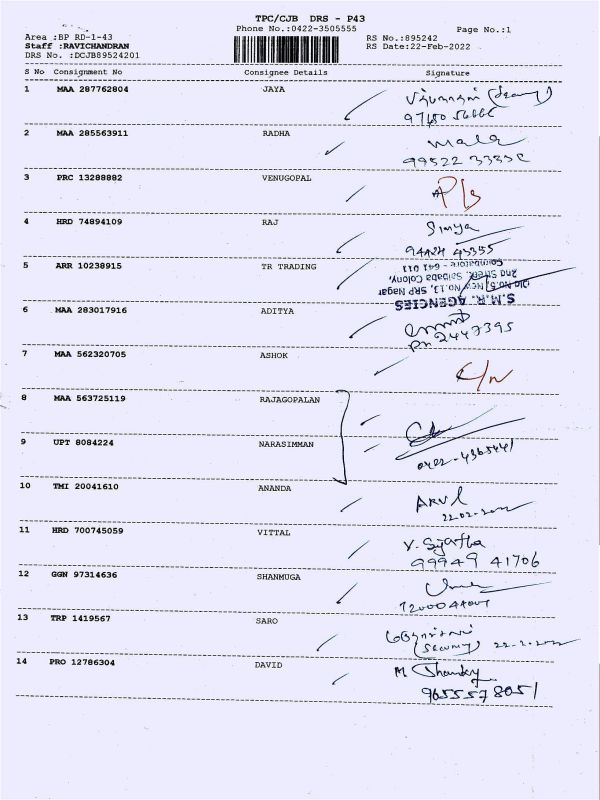 TPC/CJB DRS - P43
Phone No.:0422-3505555
Page No.:1
Area :BP RD-1-43
RS No.:895242
Staff :RAVICHANDRAN
RS Date:22-Feb-2022
DRS No. :DCJB89524201
S No Consignment No Consignee Details Signature
1 MAA 287762804 JAYA
(Security)
2 MAA 285563911 RADHA
Mala
3 PRC 13288882 VENUGOPAL
P/s
4 HRD 74894109 RAJ
5 ARR 10238915 TR TRADING
S.M.R. AGENCIES
Old No.5, New No.13, SRP Nagar
2nd Street, Saibaba Colony,
Coimbatore - 641 011
6 MAA 283017916 ADITYA
Ph 2447395
7 MAA 562320705 ASHOK
C/N
8 MAA 563725119 RAJAGOPALAN
9 UPT 8084224 NARASIMMAN
10 TMI 20041610 ANANDA
ARUL
22-02-2022
11 HRD 700745059 VITTAL
99949 41706
12 GGN 97314636 SHANMUGA
13 TRP 1419567 SARO
(Security) 22-2-2022
14 PRO 12786304 DAVID
9655578051